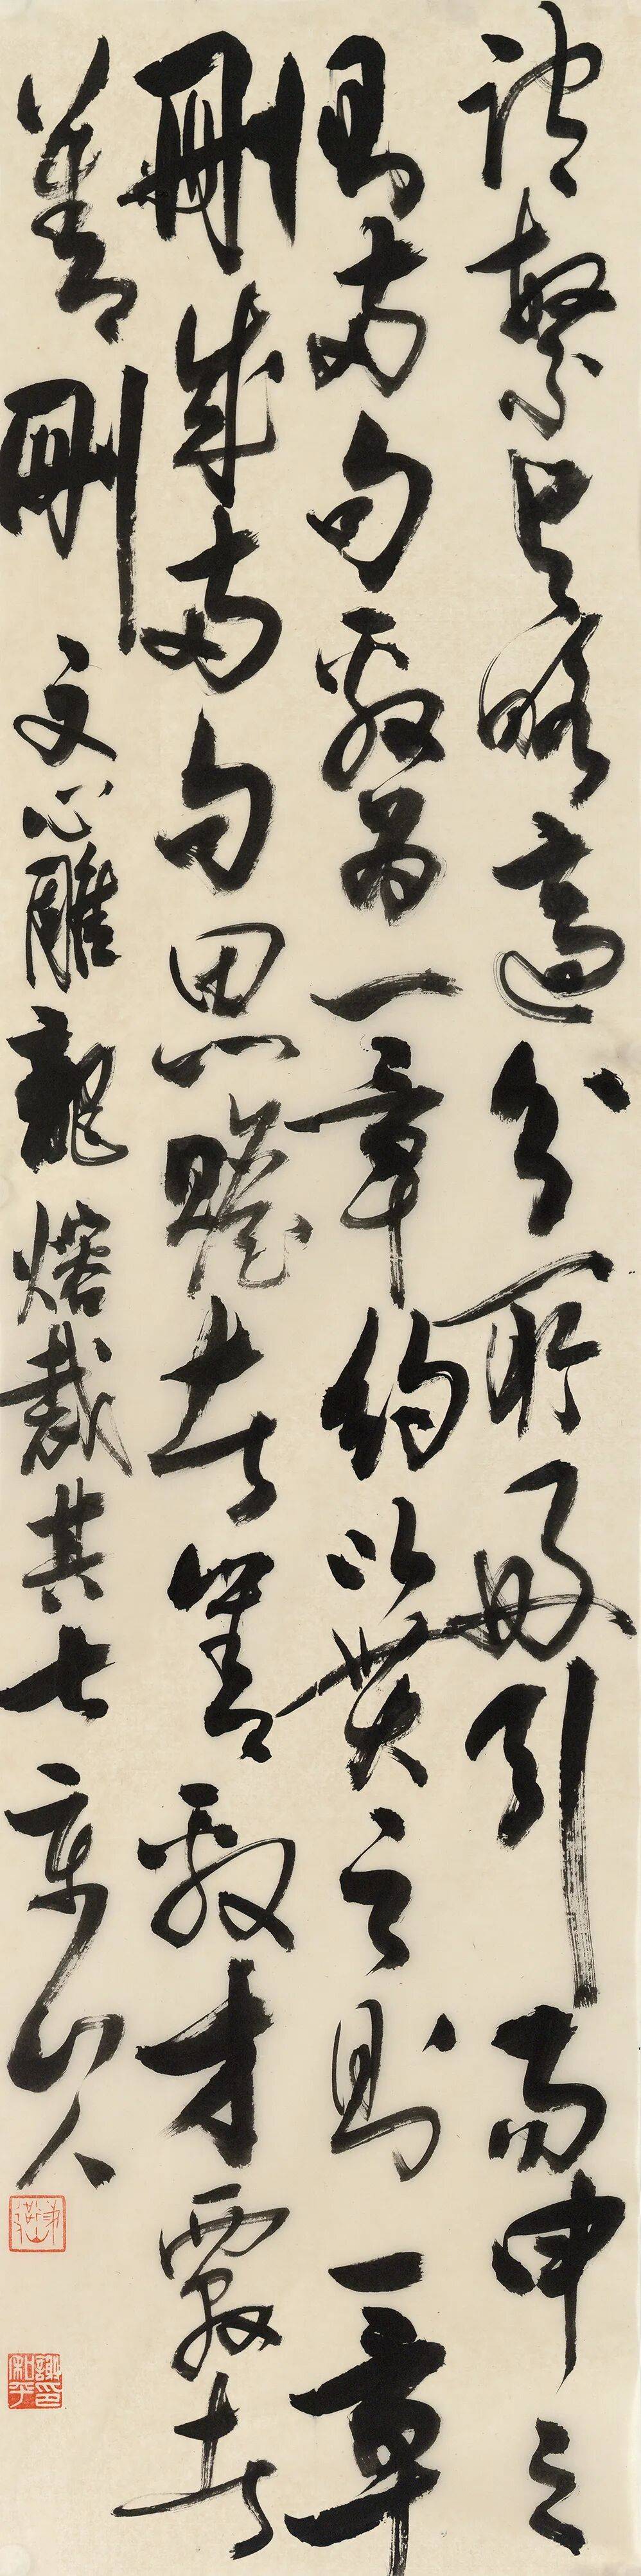 謂繁与略適分所好引而申之
則兩句敷為一章約以貫之則一章
刪成兩句思贍者善敷才覈者
善刪 文心雕龍 熔裁其七 京山人
謝印和平